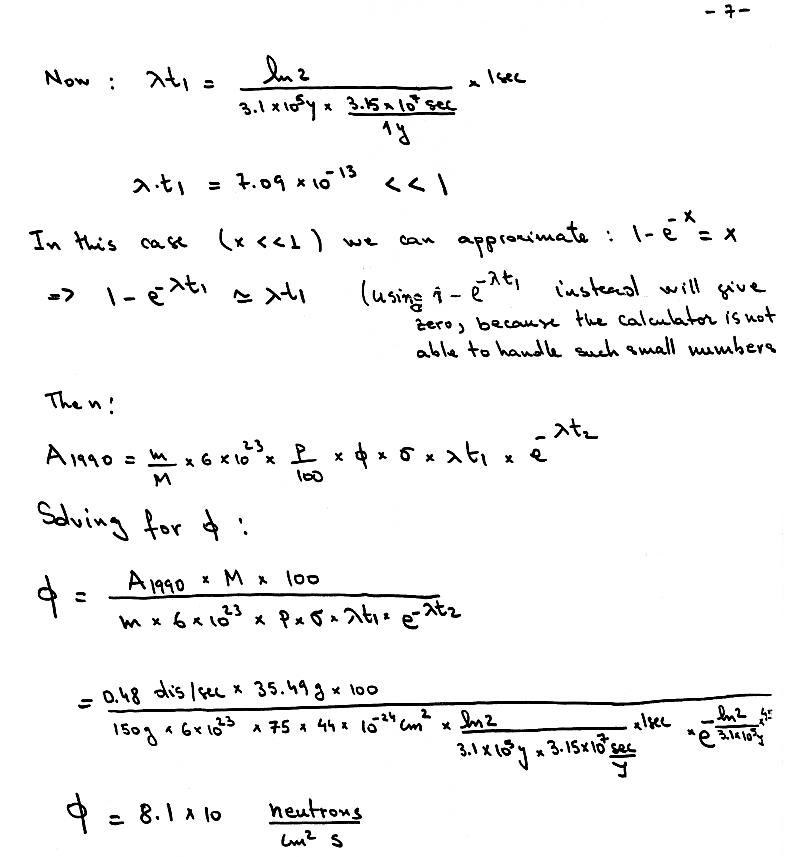 - 7 -
Now : λt₁ = ln 2 / (3.1 × 10⁵ y × 3.15 × 10⁷ sec / 1y) × 1sec
λ·t₁ = 7.09 × 10⁻¹³ << 1
In this case (x << 1) we can approximate : 1 - e⁻ˣ = x
=> 1 - e^(-λt₁) ≃ λt₁ (using 1 - e^(-λt₁) instead will give
zero, because the calculator is not
able to handle such small numbers
Then:
A₁₉₉₀ = m/M × 6 × 10²³ × P/100 × ϕ × σ × λt₁ × e^(-λt₂)
Solving for ϕ :
ϕ = (A₁₉₉₀ × M × 100) / (m × 6 × 10²³ × P × σ × λt₁ × e^(-λt₂))
= (0.48 dis/sec × 35.49 g × 100) / (150g × 6 × 10²³ × 75 × 44 × 10⁻²⁴ cm² × ln 2 / (3.1 × 10⁵ y × 3.15 × 10⁷ sec/y) × 1sec × e^(-ln 2 / 3.1 × 10⁵ y × 45))
ϕ = 8.1 × 10 neutrons / cm² s